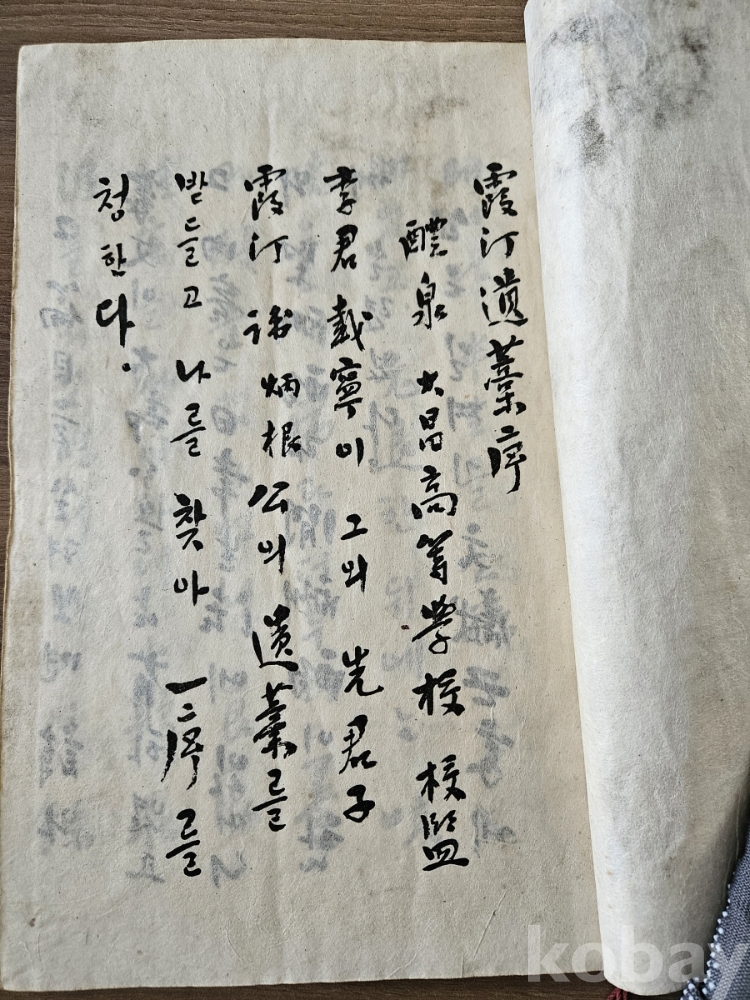 霞汀遺藁序
醴泉 大昌高等學校 校監
李君載寧이 그의 先君子
霞汀 諱炳根公의 遺藁를
받들고 나를 찾아 一序를
청한다.
kobay